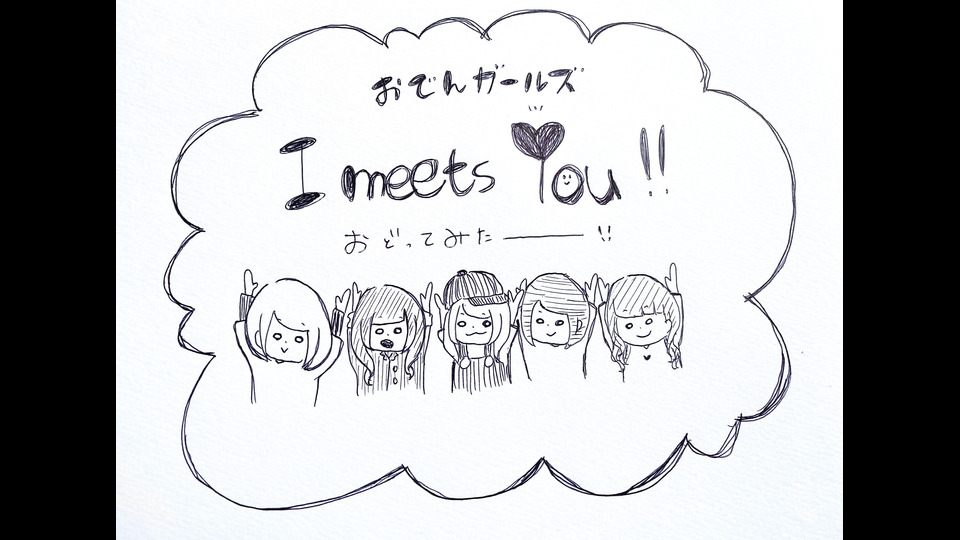 おでんガールズ
I meets You!!
おどってみたーーー!!